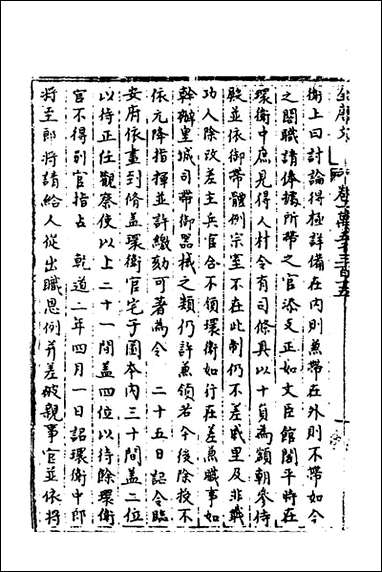 衛上曰討論得極詳備在内則兼帶在外則不帶如今
之閣職請俸據所帶之官添支正如文臣館閣平時在
環衛中庶見得人材令有司條具以十員為額朝參侍
殿並依御帶體例宗室不在此制仍不差戚里及非戰
功人除改差主兵官合不領環衛如行在差兼職事如
幹辦皇城司帶御器械之類仍許兼領若今後除授不
依元降指揮並許繳刻可著為令 二十五日詔令臨
安府依畫到脩蓋環衛官宅子圖本内三十間蓋二位
以待正任觀察使以上二十一間蓋四位以待餘環衛
官不得別官指占 乾道二年四月一日詔環衛中郎
將至郎將請給人從出職恩例并差破親事官並依將